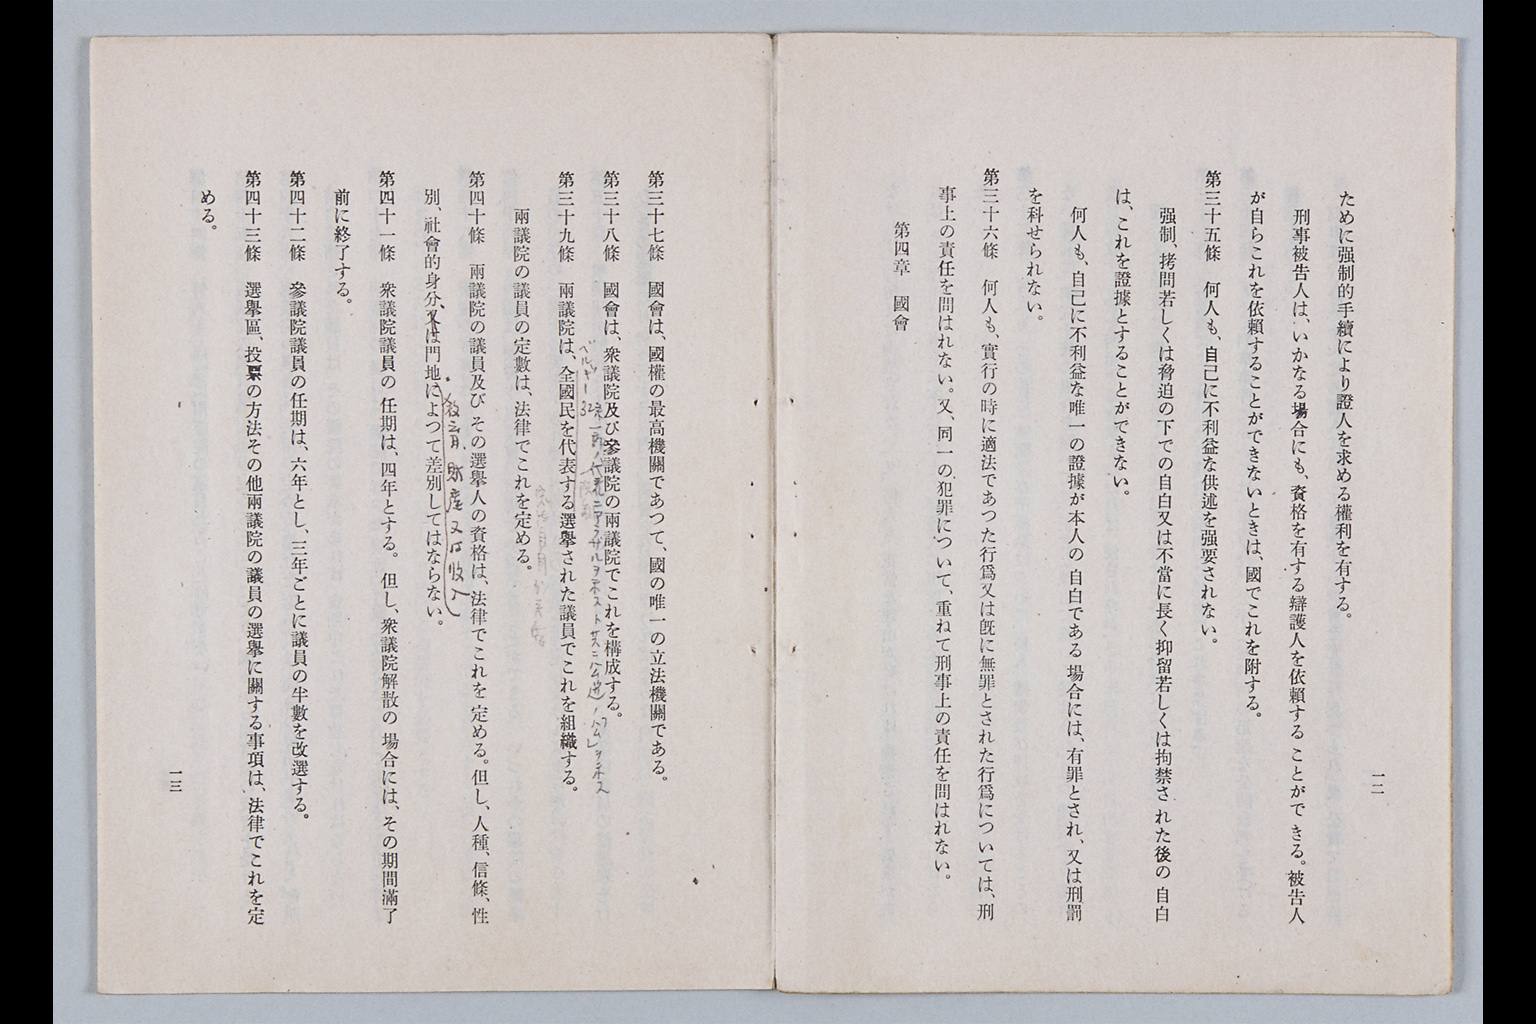 ために强制的手續により證人を求める權利を有する。
刑事被告人は、いかなる場合にも、資格を有する辯護人を依賴することができる。被告人
が自らこれを依賴することができないときは、國でこれを附する。
第三十五條　何人も、自己に不利益な供述を强要されない。
强制、拷問若しくは脅迫の下での自白又は不當に長く抑留若しくは拘禁された後の自白
は、これを證據とすることができない。
何人も、自己に不利益な唯一の證據が本人の自白である場合には、有罪とされ、又は刑罰
を科せられない。
第三十六條　何人も、實行の時に適法であつた行爲又は既に無罪とされた行爲については、刑
事上の責任を問はれない。又、同一の犯罪について、重ねて刑事上の責任を問はれない。
第四章　國會
一二
第三十七條　國會は、國權の最高機關であつて、國の唯一の立法機關である。
第三十八條　國會は、衆議院及び參議院の兩議院でこれを構成する。
ベルギー32
第三十九條　兩議院は、全國民を代表する選擧された議員でこれを組織する。
兩議院の議員の定數は、法律でこれを定める。
第四十條　兩議院の議員及びその選擧人の資格は、法律でこれを定める。但し、人種、信條、性
教育、財産又は收入
別、社會的身分、又は門地によつて差別してはならない。
第四十一條　衆議院議員の任期は、四年とする。但し、衆議院解散の場合には、その期間滿了
前に終了する。
第四十二條　參議院議員の任期は、六年とし、三年ごとに議員の半數を改選する。
第四十三條　選擧區、投票の方法その他兩議院の議員の選擧に關する事項は、法律でこれを定
める。
一三